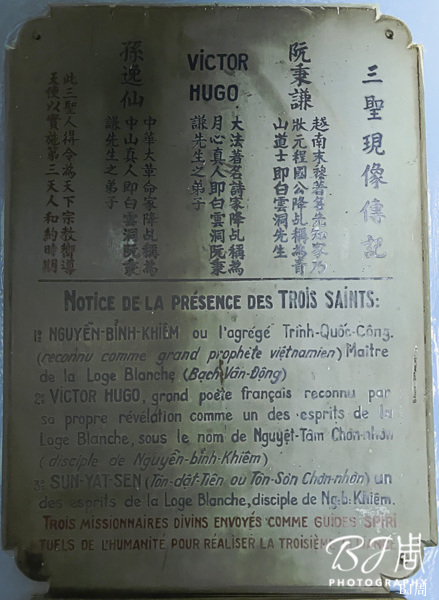 三聖現像傳記
阮秉謙
越南末黎著名先知家乃
狀元程國公降乩稱為青
山道士即白雲洞先生
VICTOR
HUGO
大法著名詩家降乩稱為
月心真人即白雲洞阮秉
謙先生之弟子
孫逸仙
中華大革命家降乩稱為
中山真人即白雲洞阮秉
謙先生之弟子
此三聖人得令為天下宗教嚮導
天使以實施第三天人和約時期
NOTICE DE LA PRÉSENCE DES TROIS SAINTS:
1º NGUYỄN-BỈNH-KHIÊM ou l'agrégé Trình-Quốc-Công.
(reconnu comme grand prophète viêtnamien) Maître
de la Loge Blanche (Bạch-Vân-Động)
2º VICTOR HUGO, grand poète français reconnu par
sa propre révélation comme un des esprits de la
Loge Blanche, sous le nom de Nguyệt-Tâm Chơn-nhơn
(disciple de Nguyễn-bỉnh-Khiêm)
3º SUN-YAT-SEN (Tôn-dật-Tiên ou Tôn-Sơn Chơn-nhơn) un
des esprits de la Loge Blanche, disciple de Ng.b.Khiêm.
TROIS MISSIONNAIRES DIVINS ENVOYÉS COMME GUIDES SPIRI
TUELS DE L'HUMANITÉ POUR RÉALISER LA TROISIÈME
BJ周
PHOTOGRAPHY
BJ周